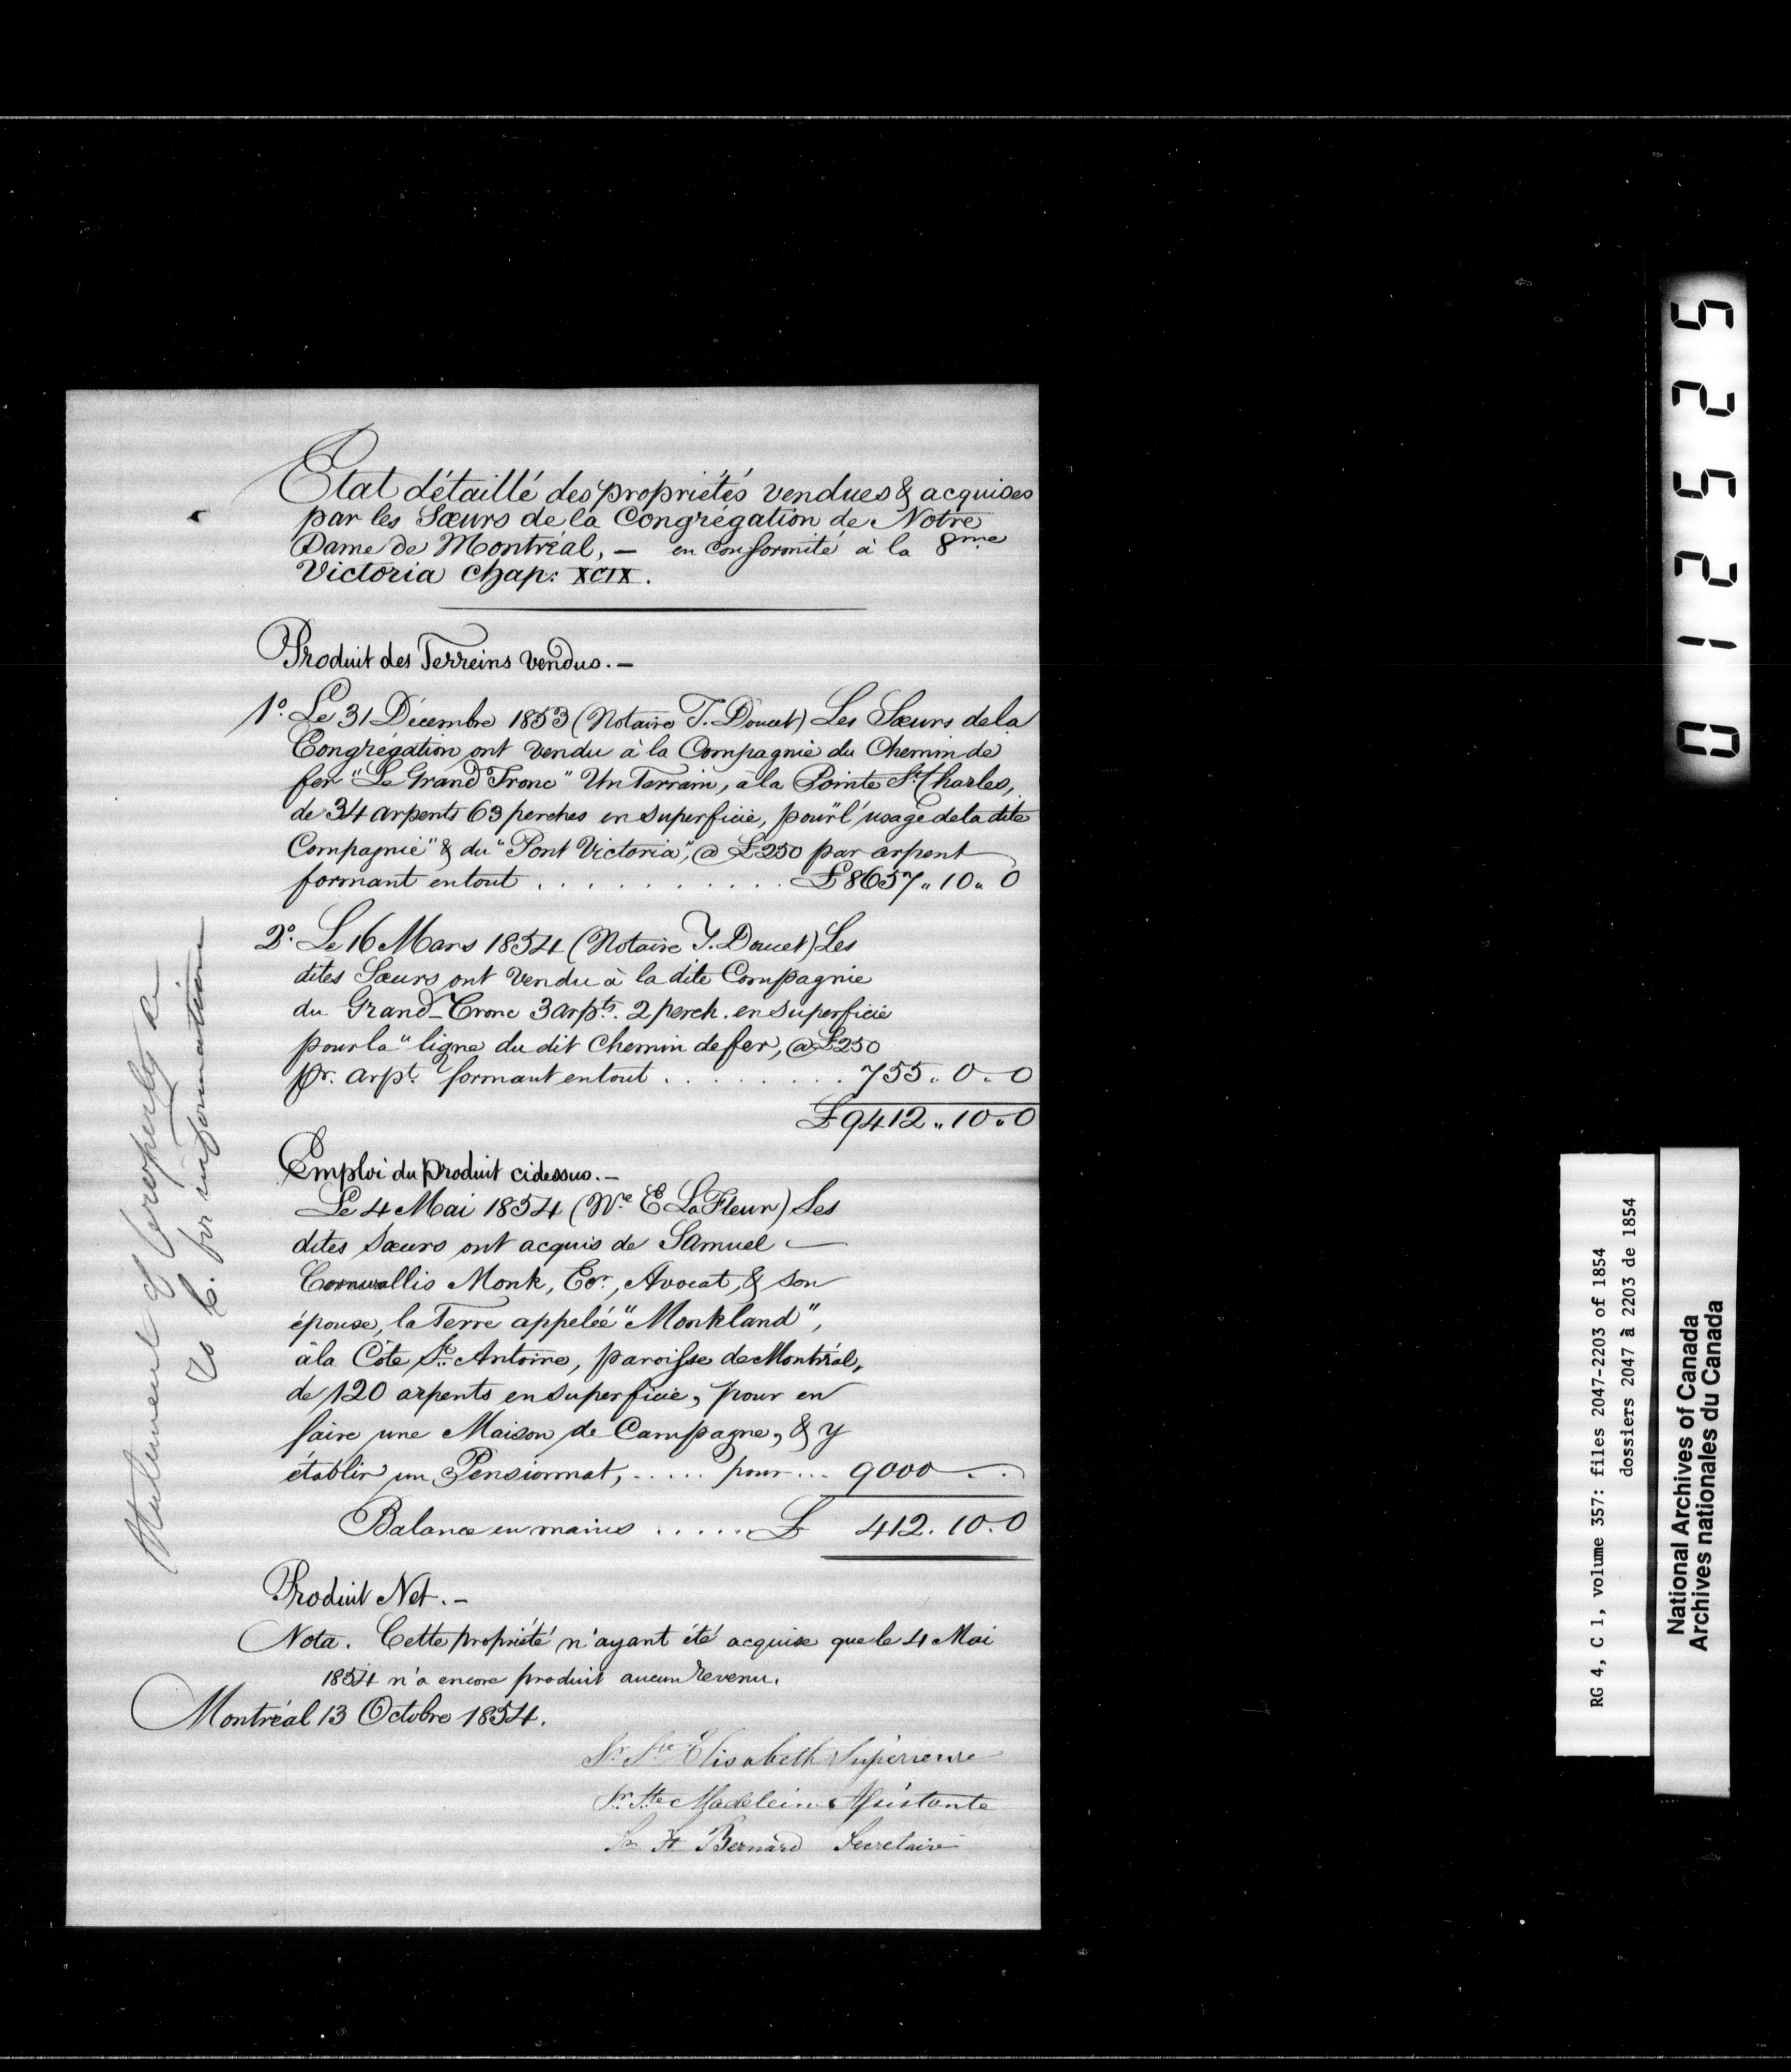 Etat détaillé des propriétés vendues & acquises
par les Sœurs de la Congrégation de Notre
Dame de Montréal, — en conformité à la 8me
Victoria Chap: XCIX.
Produit des Terreins vendus. —
1º. Le 31 Décembre 1853 (Notaire T. Doucet) Les Sœurs de la
Congrégation ont vendu à la Compagnie du Chemin de
fer "Le Grand Tronc" Un Terrain, à la Pointe St. Charles,
de 34 arpents 63 perches en superficie, pour "l'usage de la dite
Compagnie" & du "Pont Victoria", @ £250 par arpent
formant en tout . . . . . . . . . . . £8657 " 10 " 0
2º. Le 16 Mars 1854 (Notaire T. Doucet) Les
dites Sœurs ont vendu à la dite Compagnie
du Grand-Tronc 3 arpts. 2 perch. en superficie
pour la "ligne du dit Chemin de fer, @ £250
pr. arpt. formant en tout . . . . . . . . 755 " 0 " 0
£9412 " 10 " 0
Emploi du Produit cidessus. —
Le 4 Mai 1854 (Nre E LaFleur) Les
dites Sœurs ont acquis de Samuel —
Cornwallis Monk, Ecr., Avocat, & son
épouse, la Terre appelée "Monkland",
à la Côte St. Antoine, paroisse de Montréal,
de 120 arpents en superficie, pour en
faire une Maison de Campagne, & y
établir un Pensionnat, . . . . . pour . . . 9000 — . .
Balance en mains . . . . . £ 412. 10. 0
Produit Net. —
Nota. Cette propriété n'ayant été acquise que le 4 Mai
1854 n'a encore produit aucun revenu.
Montréal 13 Octobre 1854.
Sr. Ste Elisabeth Supérieure
Sr. Ste Madeleine Assistante
Sr St Bernard Secretaire
Statement of Property &c
to C. for information
52521 0
RG 4, C 1, volume 357: files 2047-2203 of 1854
dossiers 2047 à 2203 de 1854
National Archives of Canada
Archives nationales du Canada